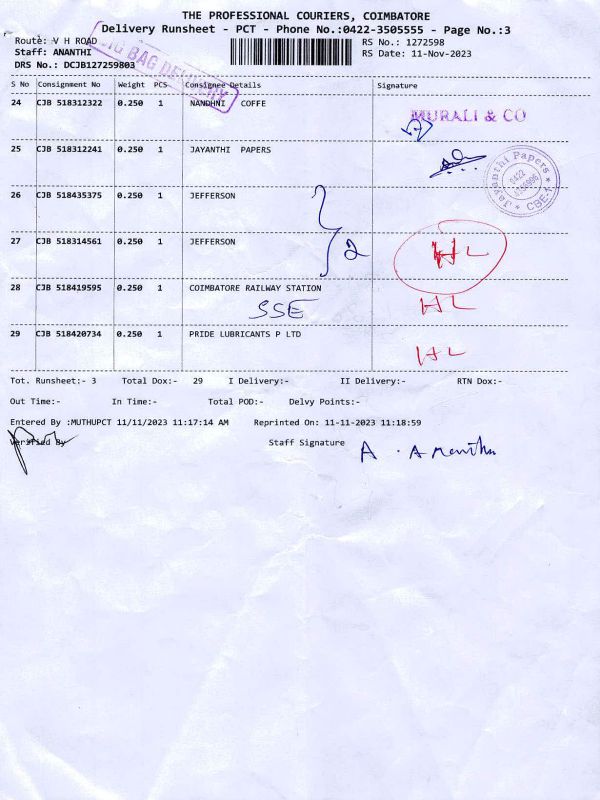 THE PROFESSIONAL COURIERS, COIMBATORE
Delivery Runsheet - PCT - Phone No.:0422-3505555 - Page No.:3
Route: V H ROAD
RS No.: 1272598
Staff: ANANTHI
RS Date: 11-Nov-2023
DRS No.: DCJB127259803
BIG BAG DELIVERY
S No Consignment No Weight PCS Consignee Details Signature
24 CJB 518312322 0.250 1 NANDHNI COFFE
MURALI & CO
25 CJB 518312241 0.250 1 JAYANTHI PAPERS
Jayanthi Papers * CBE-1 *
0422
26 CJB 518435375 0.250 1 JEFFERSON
27 CJB 518314561 0.250 1 JEFFERSON
2
HL
28 CJB 518419595 0.250 1 COIMBATORE RAILWAY STATION
SSE
HL
29 CJB 518420734 0.250 1 PRIDE LUBRICANTS P LTD
HL
Tot. Runsheet:- 3 Total Dox:- 29 I Delivery:- II Delivery:- RTN Dox:-
Out Time:- In Time:- Total POD:- Delvy Points:-
Entered By :MUTHUPCT 11/11/2023 11:17:14 AM Reprinted On: 11-11-2023 11:18:59
Verified By
Staff Signature
A. Ananthi